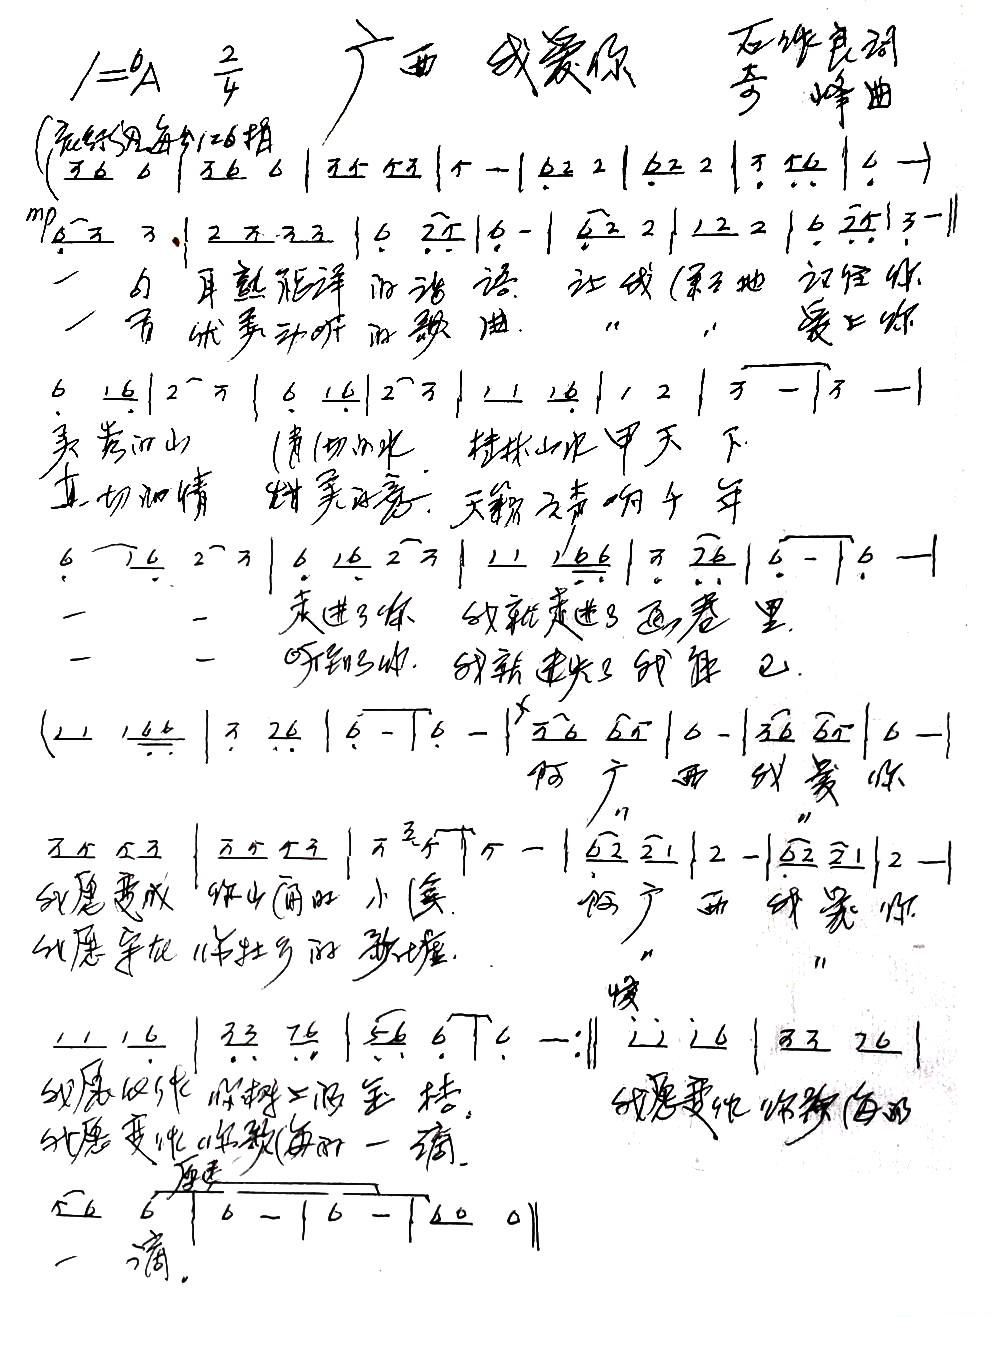 1=♭A 2/4 广西 我爱你 石作良词
奇峰曲
每分126拍
(36 6 | 36 6 | 35 53 | 5 — | 62 2 | 62 2 | 3 56 | 6 —)
mp 63 3 | 23 33 | 6 25 | 6 — | 62 2 | 12 2 | 6 25 | 3 — ‖
一句耳熟能详的谚语 让我深深地记住你
一首优美动听的歌曲 〃 〃 爱上你
6 16 | 2 3 | 6 16 | 2 3 | 11 16 | 1 2 | 3 — | 3 — |
美岩的山 清清的水 桂林山水甲天下
真切的情 甜美的音 天籁之声响千年
6 16 2 3 | 6 16 2 3 | 11 166 | 3 76 | 6 — | 6 — |
— — 走进了你 我就走进了画卷里
— — 听到了你 我就迷失了我自己
(11 166 | 3 76 | 6 — | 6 — | 36 65 | 6 — | 36 65 | 6 — |
阿广西 我爱你
〃 〃
35 53 | 35 53 | 3 5 | 5 — | 62 21 | 2 — | 62 21 | 2 — |
我愿变成 你山间的小溪 阿广西 我爱你
我愿守在 你壮乡的歌墟 〃 〃
慢
11 16 | 33 76 | 56 6 | 6 — :‖ 11 16 | 33 76 |
我愿化作 你树上的金桔 我愿变作你歌海的
我愿变作你歌海的一滴
原速
56 6 | 6 — | 6 — | 60 0 ‖
一滴